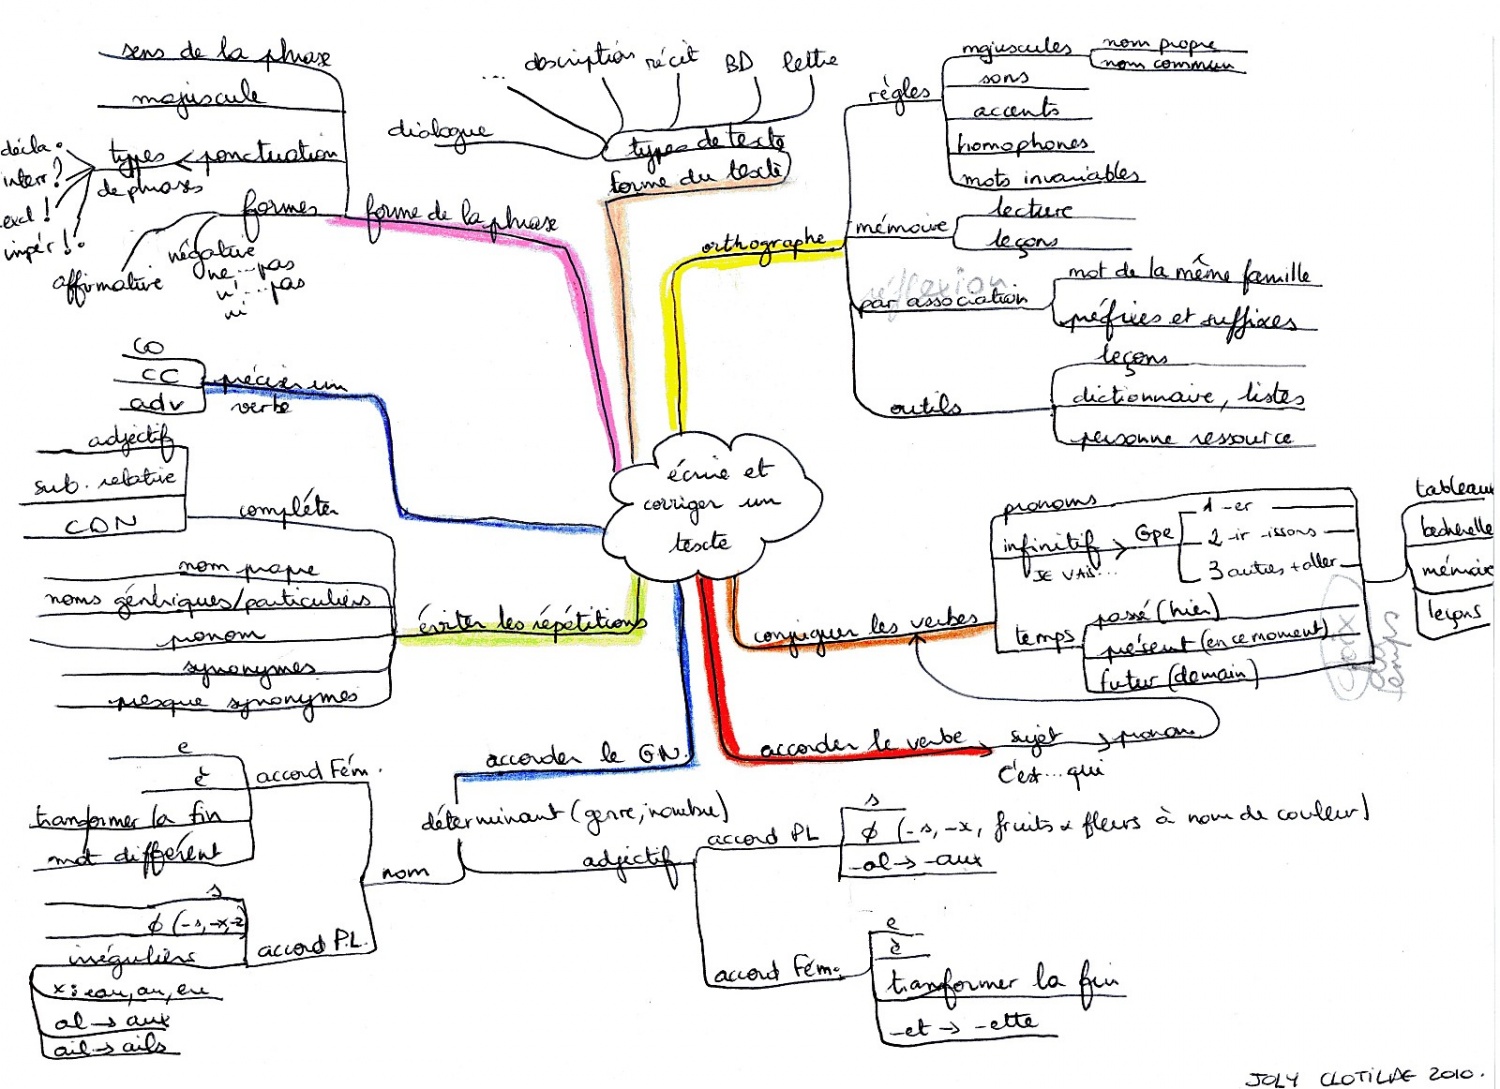 écrire et
corriger un
texte
forme du texte
types de texte
dialogue
...
description
récit
BD
lettre
orthographe
règles
majuscules
nom propre
nom commun
sons
accents
homophones
mots invariables
mémoire
lecture
leçons
réflexion
par association
mot de la même famille
préfixes et suffixes
outils
leçons
dictionnaire, listes
personne ressource
conjuguer les verbes
pronoms
infinitif
JE VAIS...
Gpe
1 -er
2 -ir -issons
3 autres + aller
temps
passé (hier)
présent (en ce moment)
futur (demain)
temps
tableau
becherelle
mémoire
leçons
accorder le verbe
sujet
pronom
c'est...qui
accorder le GN.
déterminant (genre, nombre)
adjectif
accord PL
s
ϕ (-s, -x, fruits x fleurs à nom de couleur)
-al → -aux
accord Fém.
e
è
transformer la fin
-et → -ette
nom
accord Fém.
e
è
transformer la fin
mot différent
accord P.L.
s
ϕ (-s, -x, -z)
irréguliers
x : eau, au, eu
al → aux
ail → ails
éviter les répétitions
compléter
adjectif
sub. relative
CDN
nom propre
noms génériques/particuliers
pronom
synonymes
presque synonymes
préciser un
verbe
CO
CC
adv
forme de la phrase
sens de la phrase
majuscule
ponctuation
types
de phrases
décla .
interr ?
excl !
impér ! .
formes
affirmative
négative
ne...pas
n'...pas
ni
JOLY CLOTILDE 2010.